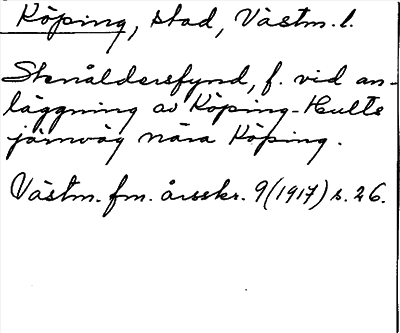 Köping, stad, Västm. l.
Stenåldersfynd, f. vid an-
läggning av Köping-Hults
järnväg nära Köping.
Västm. fm. årsskr. 9 (1917) s. 26.